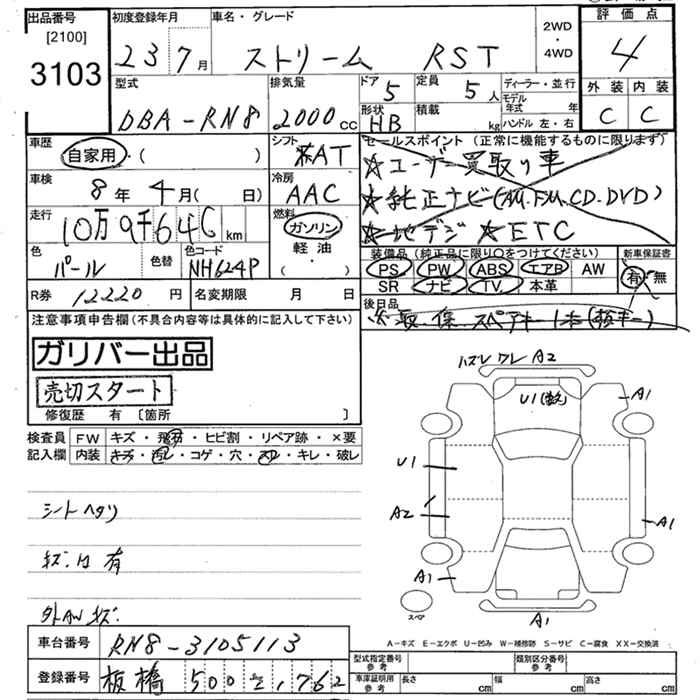 出品番号
[2100]
3103
初度登録年月
23 7月
車名・グレード
ストリーム RST
2WD
・
4WD
評価点
4
外装 内装
C C
型式
DBA-RN8
排気量
2000cc
ドア
5
定員
5人
ディーラー・並行
モデル年式 年
形状
HB
積載
kg
ハンドル 左・右
車歴
自家用・( )
シフト
AT
セールスポイント (正常に機能するものに限ります)
☆ユーザー買取り車
☆純正ナビ(AM.FM.CD.DVD)
☆地デジ ☆ETC
車検
8年 4月( 日)
冷房
AAC
走行
10万9千646km
燃料
ガソリン
・
軽油
・
( )
色
パール
色替
色コード
NH624P
装備品 (純正品に限り○をつけてください)
PS PW ABS エアB AW
SR ナビ TV 本革
新車保証書
有・無
R券 12220円
名変期限 月 日
後日品
取.保.スペアキー1本
注意事項申告欄(不具合内容等は具体的に記入して下さい)
ガリバー出品
売切スタート
修復歴 有 〔箇所 〕
検査員記入欄
FW キズ・飛石・ヒビ割・リペア跡・×要
内装 キズ・汚レ・コゲ・穴・スレ・キレ・破レ
シートヘタリ
キズ凹有
外AWキズ
ハズレ ワレ A2
U1
A1
U1
A2
A1
A1
A1
スペア
A-キズ E-エクボ U-凹み W-補修跡 S-サビ C-腐食 XX-交換済
車台番号 RN8-3105113
登録番号 板橋 500 1762
型式指定番号 参考
類別区分番号 参考
車庫証明用 参考
長さ cm
幅 cm
高さ cm